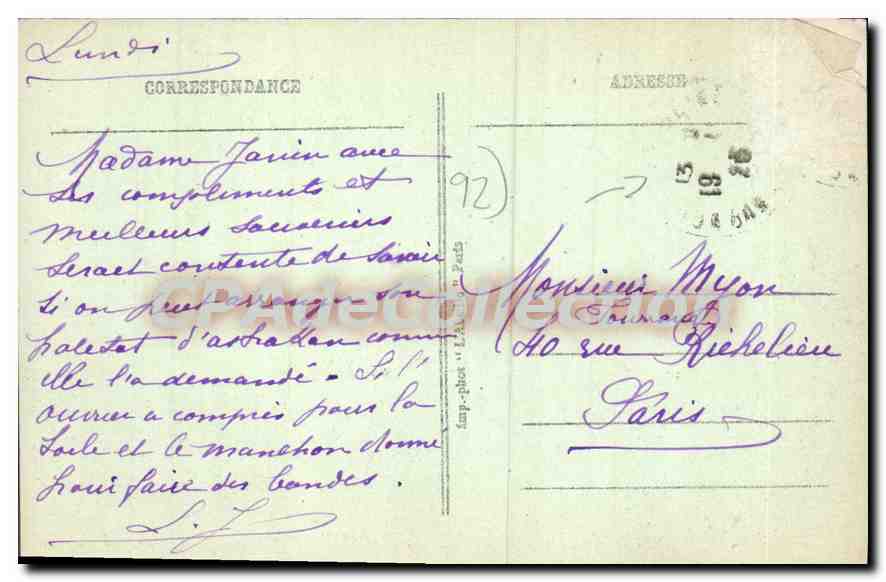 Lundi
CORRESPONDANCE
Madame Janin avec
ses compliments et
meilleurs souvenirs
serait contente de savoir
si on peut arranger son
paletot d'astrakan comme
elle l'a demandé. Si l'
ouvrier a compris pour la
toile et le manchon donné
pour faire des bandes.
L. J
Imp.-phot "L'Abeille" Paris
ADRESSE
92)
13
16
26
Monsieur Myon
Fourreur
40 rue Richelieu
Paris
CPAdeCollection